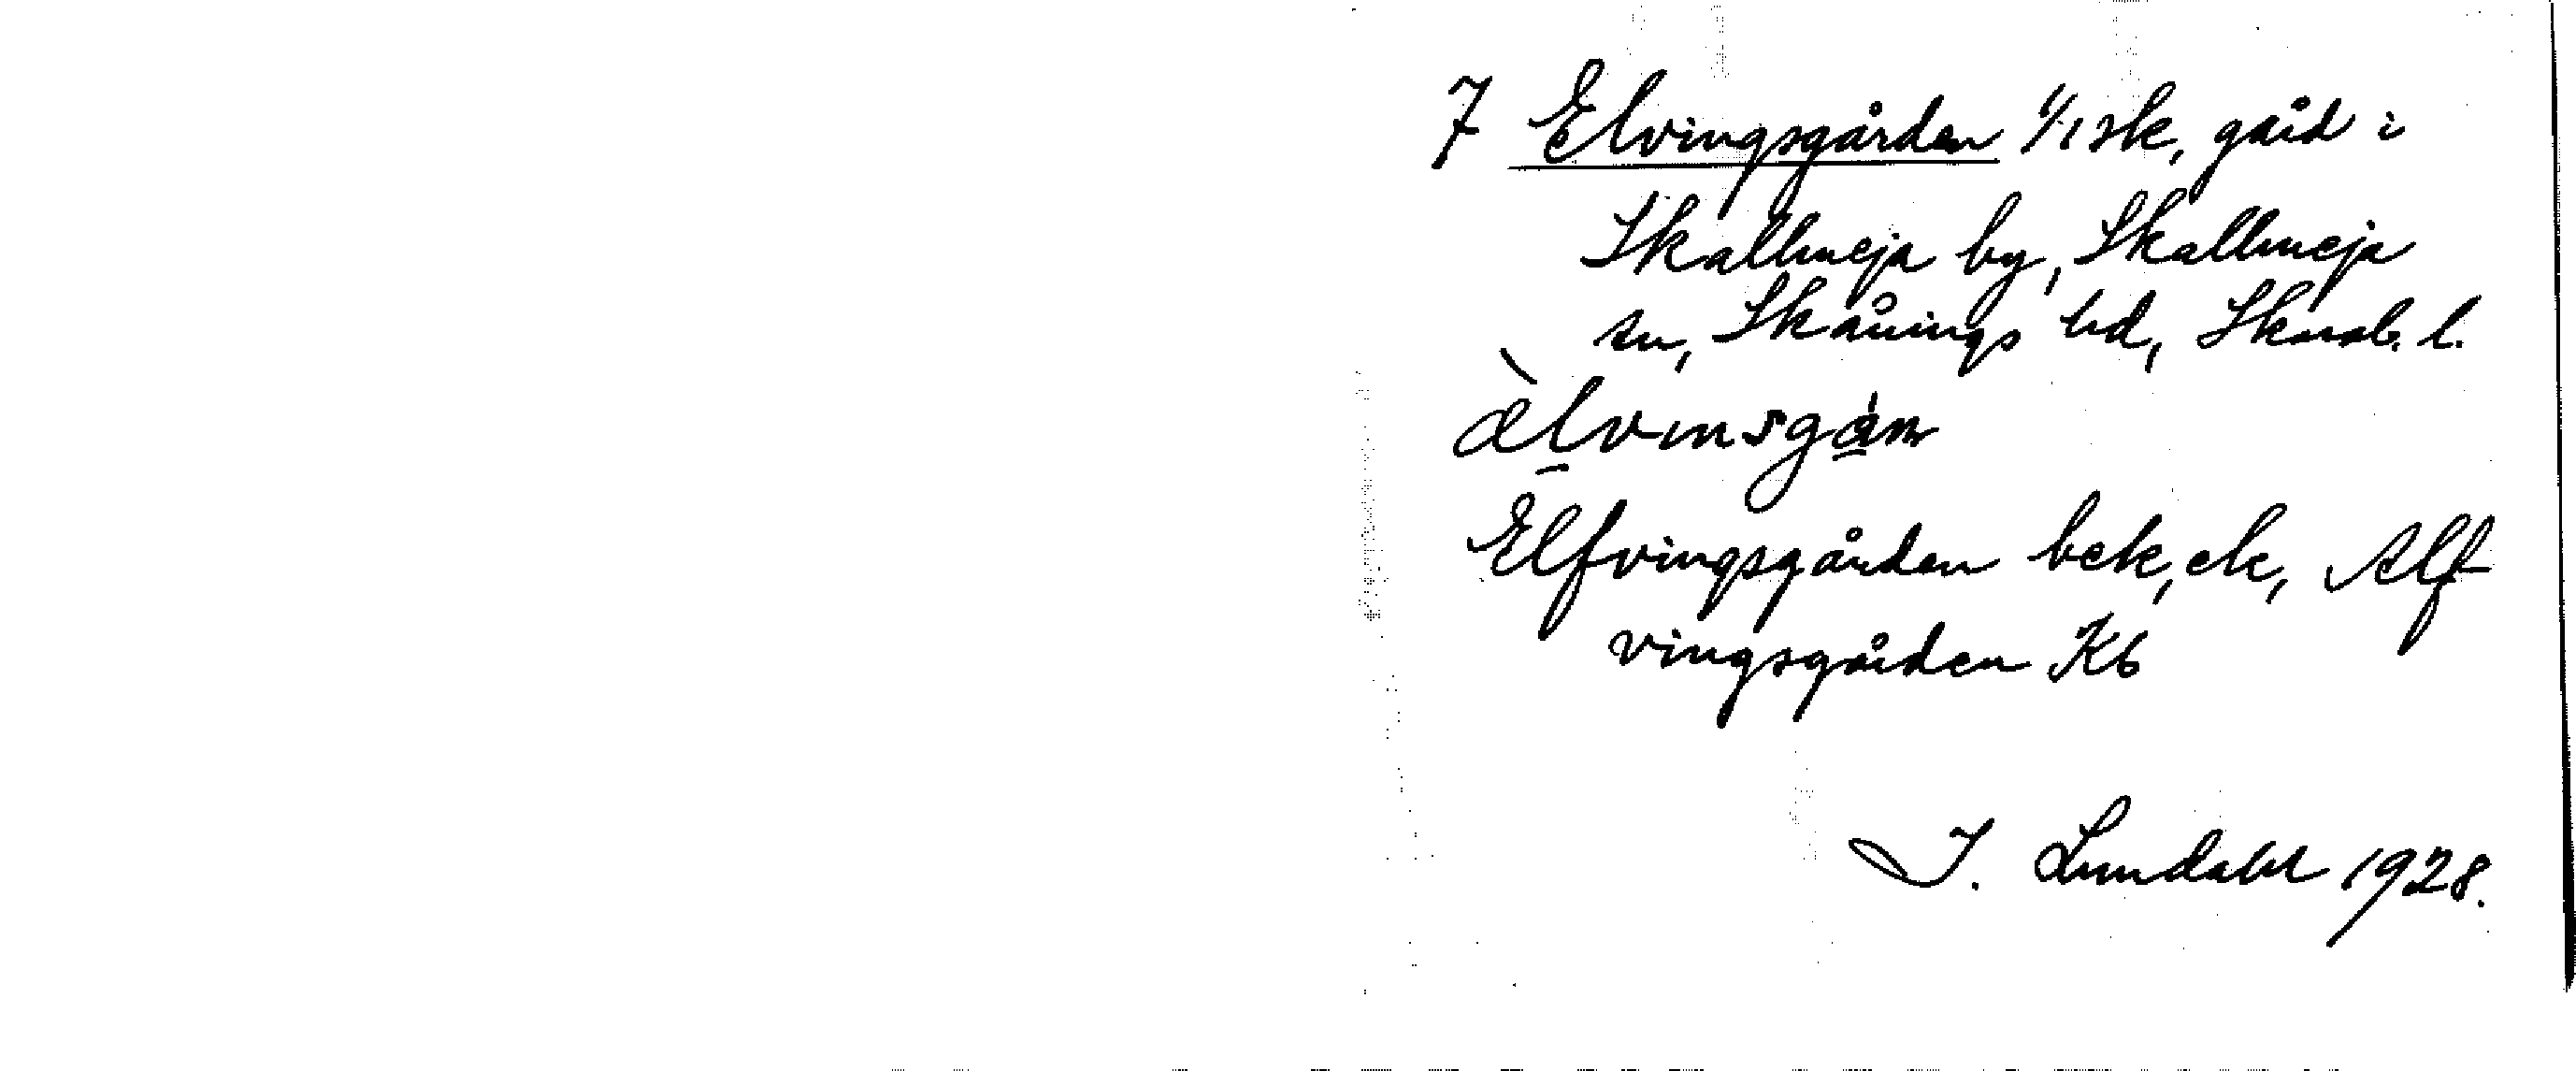 7 Elvingsgården 1/1 sk, gård i
Skallmeja by, Skallmeja
sn, Skånings hd, Skarab. l.
Elfvingsgården bek, ek, Alf
vingsgården Kb
I. Lundahl 1928.